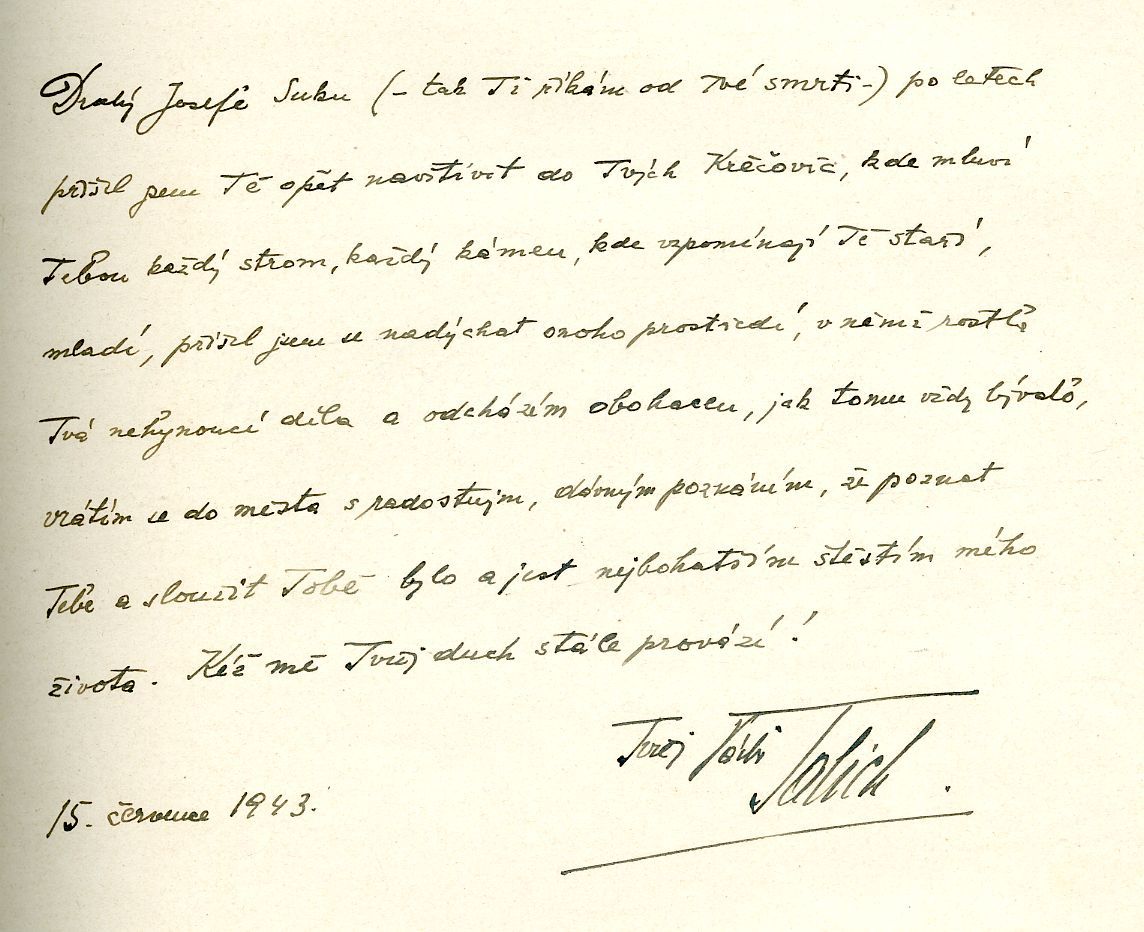 Drahý Josefe Suku (- tak Ti říkám od Tvé smrti -) po letech
přišel jsem Tě opět navštívit do Tvých Křečovic, kde mluví
Tebou každý strom, každý kámen, kde vzpomínají Tě staří,
mladí, přišel jsem se nadýchat onoho prostředí, v němž rostla
Tvá nehynoucí díla a odcházím obohacen, jak tomu vždy bývalo,
vrátím se do města s radostným, dávným poznáním, že poznat
Tebe a sloužit Tobě bylo a jest nejbohatším štěstím mého
života. Kéž mě Tvůj duch stále provází!
Tvůj Talich.
15. července 1943.